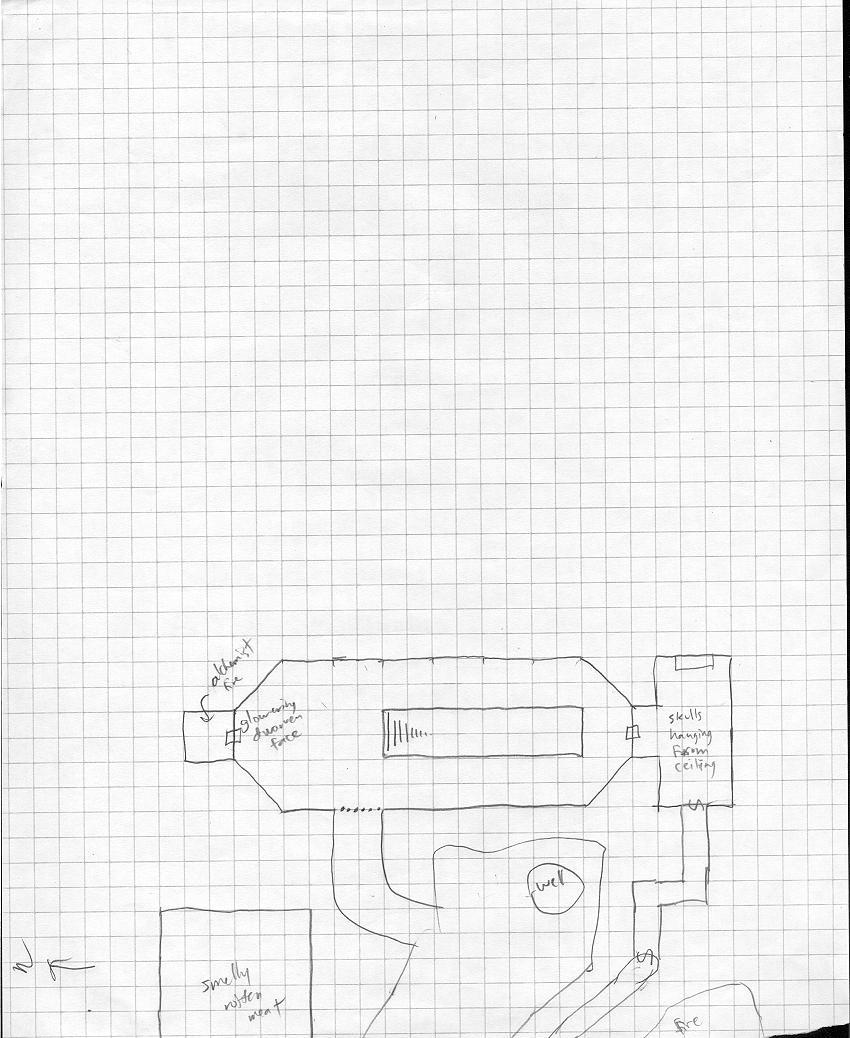 alchemist
fire
glowering
dwarven
face
skulls
hanging
from
ceiling
S
well
S
N
smelly
rotten
meat
fire